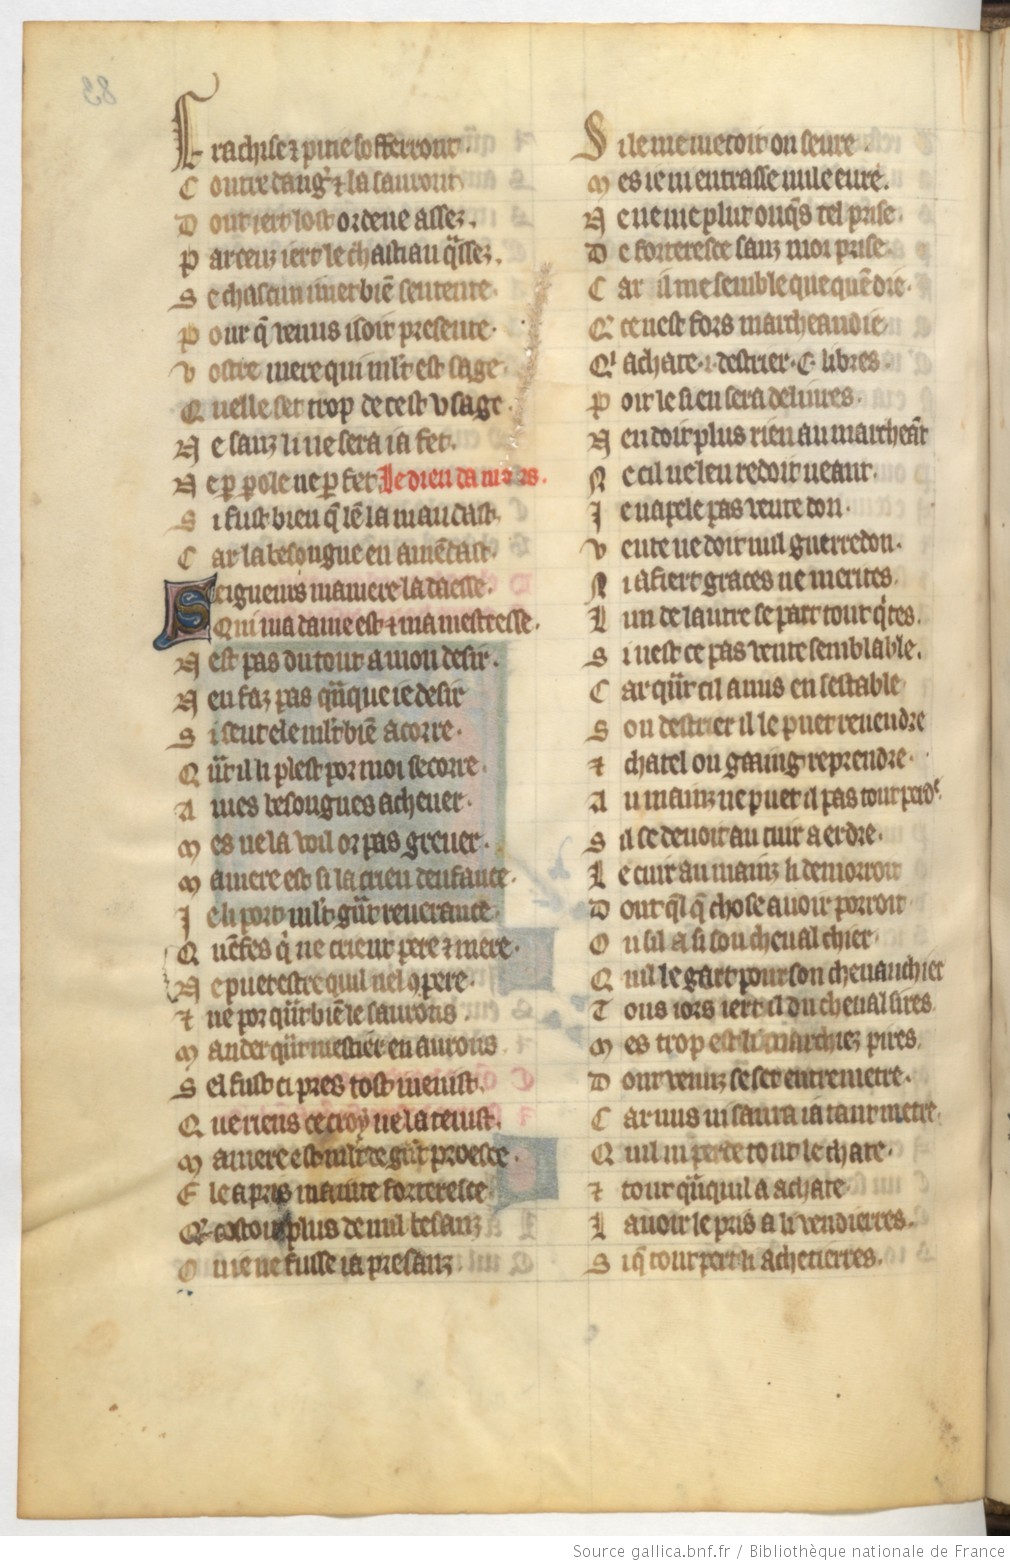 83
Frachise ⁊ pitie sofferront
Contre dang̃ ⁊ la sauront
Dont iert lost ordene assez.
Par ceuz iert le chastiau q̃ssez.
Se chascun i met biẽ sentente
Pour q̃ venus i soit presente.
Vostre mere qui ml't est sage
Quelle set trop de cest vsage.
Ne sanz li ne sera ia fet.
Ne p̲ pole ne p̲ fet Le dieu damors.
Si fust bien q̃ lẽ la mandast
Car la besongne en amẽdast.
Seigneurs ma mere la daesse.
Qui ma dame est ⁊ ma mestresse.
Nest pas du tout a mon desir.
Nen faz pas quñque ie desir
Si seut ele ml't biẽ acorre.
Qñt il li plest por moi secorre.
A mes besongnes acheuer.
Mes ne la voil or pas greuer.
Ma mere est si la crieu denfance.
Je li port ml't gñt reuerance.
Quẽfes q̇ ne crient pere ⁊ mere.
Ne puet estre quil nel ꝯpere.
⁊ ne por qñt biẽ le saurons.
Mander qñt mestier en aurons
Sel fust ci pres tost i venist.
Que riens ce croy ne la tenist.
Ma mere est ml't de gñt proesce.
Ele a pris mainte forteresce
Q' costoit plus de mil besanz
Ou ie ne fusse ia presanz.
Si le me metoit on seure.
Mes ie ni entrasse nule eure.
Ne ne me plut onq̃s tel prise.
De forteresce sanz moi prise.
Car il me semble que quẽ die.
Q' ce nest fors marcheandie
Q' achate .i. destrier .C. libres.
Poit le si en sera deliures.
Nen doit plus rien au marcheãt
Ne cil ne leu redoit neant.
Je napele pas vente don.
Vente ne doit nul guerredon.
Ni afiert graces ne merites.
Lun de lautre se part tout q̇tes.
Si nest ce pas vente semblable.
Car qñt cil a mis en lestable
Son destrier il le puet reuendre
⁊ chatel ou gaaing reprendre.
Au mainz ne puet il pas tout perdˢ.
Sil se deuoit au cuir aerdre.
Le cuir au mainz li demorroit
Dont q̃l q̃ chose auoir porroit
Ou sil a si son cheual chier.
Quil le gart pour son cheuauchier
Tous iors iert il du cheual sires.
Mes trop est li marchiez pires
Dont venuz se set entremetre.
Car nus ni saura ia tant metre.
Quil ni perde tout le chate.
⁊ tout quñquil a achate.
Lauoir le pris a li vendierres.
Si q̇ tout pert li achetierres.
Source gallica.bnf.fr / Bibliothèque nationale de France